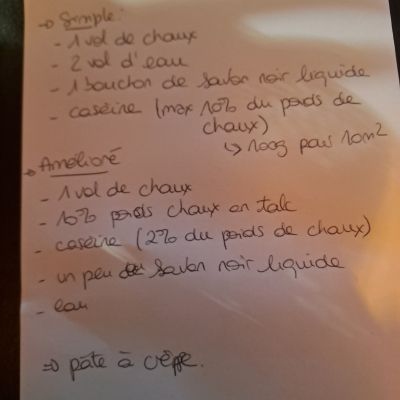 → Simple:
- 1 vol de chaux
- 2 vol d'eau
- 1 bouchon de savon noir liquide
- caséine (max 10% du poids de
chaux)
↳ 100g pour 10m²
→ Amélioré
- 1 vol de chaux
- 10% poids chaux en talc
- caséine (2% du poids de chaux)
- un peu de savon noir liquide
- eau
⇒ pâte à crêpe.